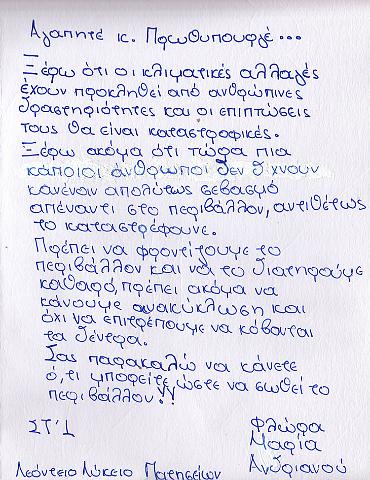 Αγαπητέ κ. Πρωθυπουργέ...
Ξέρω ότι οι κλιματικές αλλαγές
έχουν προκληθεί από ανθρώπινες
δραστηριότητες και οι επιπτώσεις
τους θα είναι καταστροφικές.
Ξέρω ακόμα ότι τώρα πια
κάποιοι άνθρωποι δεν δίχνουν
κανέναν απολύτως σεβασμό
απέναντι στο περιβάλλον, αντιθέτως
το καταστρέφουνε.
Πρέπει να φροντίζουμε το
περιβάλλον και να το διατηρούμε
καθαρό, πρέπει ακόμα να
κάνουμε ανακύκλωση και
όχι να επιτρέπουμε να κόβονται
τα δέντρα.
Σας παρακαλώ να κάνετε
ό,τι μπορείτε, ώστε να σωθεί το
περιβάλλον!!
ΣΤ'1
Φλώρα
Μαρία
Ανδριανού
Λεόντειο Λύκειο Πατησίων